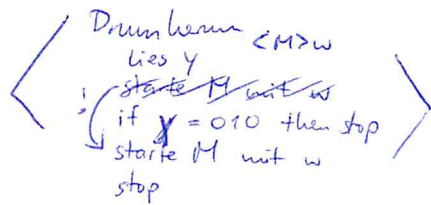 Drumherum <M>w
lies y
starte M mit w
if y = 010 then stop
starte M mit w
stop